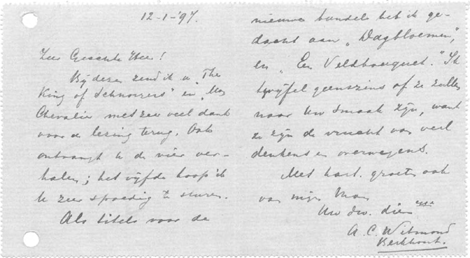 12-1-'97.
Zeer Geachte Heer!
Bijdezen zend ik u „The
King of Schnorrers" en „
Chevalier met zeer veel dank
voor de lezing terug. Ook
ontvangt u de vier ver-
halen; het vijfde hoop ik
u zeer spoedig te sturen.
Als titels voor de
nieuwe bundels heb ik ge-
dacht aan „Dagbloemen",
en „Een Veldbouquet." Ik
twijfel geenszins of ze zullen
naar Uw smaak zijn, want
ze zijn de vrucht van veel
denkens en overwegens.
Met hart. groeten ook
van mijn Man
Uw dw. dien
A. C. Witmond
Berkhout.